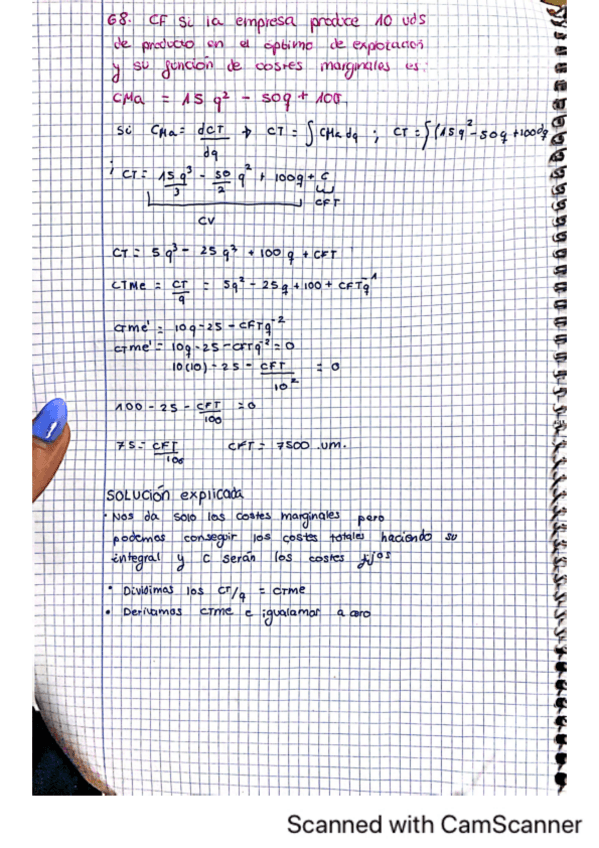 68. CF Si la empresa produce 10 uds
de producto en el óptimo de explotación
y su función de costes marginales es:
CMa = 15 q² - 50q + 100.
Si CMa = dCT/dq → CT = ∫ CMa dq ; CT = ∫(15q² - 50q + 100dq
; CT = 15q³/3 - 50/2 q² + 100q + C
CFT
CV
CT = 5q³ - 25q² + 100q + CFT
CTMe = CT/q = 5q² - 25q + 100 + CFTq⁻¹
CTme' = 10q - 25 - CFTq⁻²
CTme' = 10q - 25 - CFTq⁻² = 0
10(10) - 25 - CFT/10² = 0
100 - 25 - CFT/100 = 0
75 = CFT/100 CFT = 7500 .um.
SOLUCIÓN explicada
· Nos da solo los costes marginales pero
podemos conseguir los costes totales haciendo su
integral y C serán los costes fijos
· Dividimos los CT/q = CTme
· Derivamos CTme e igualamos a cero
Scanned with CamScanner